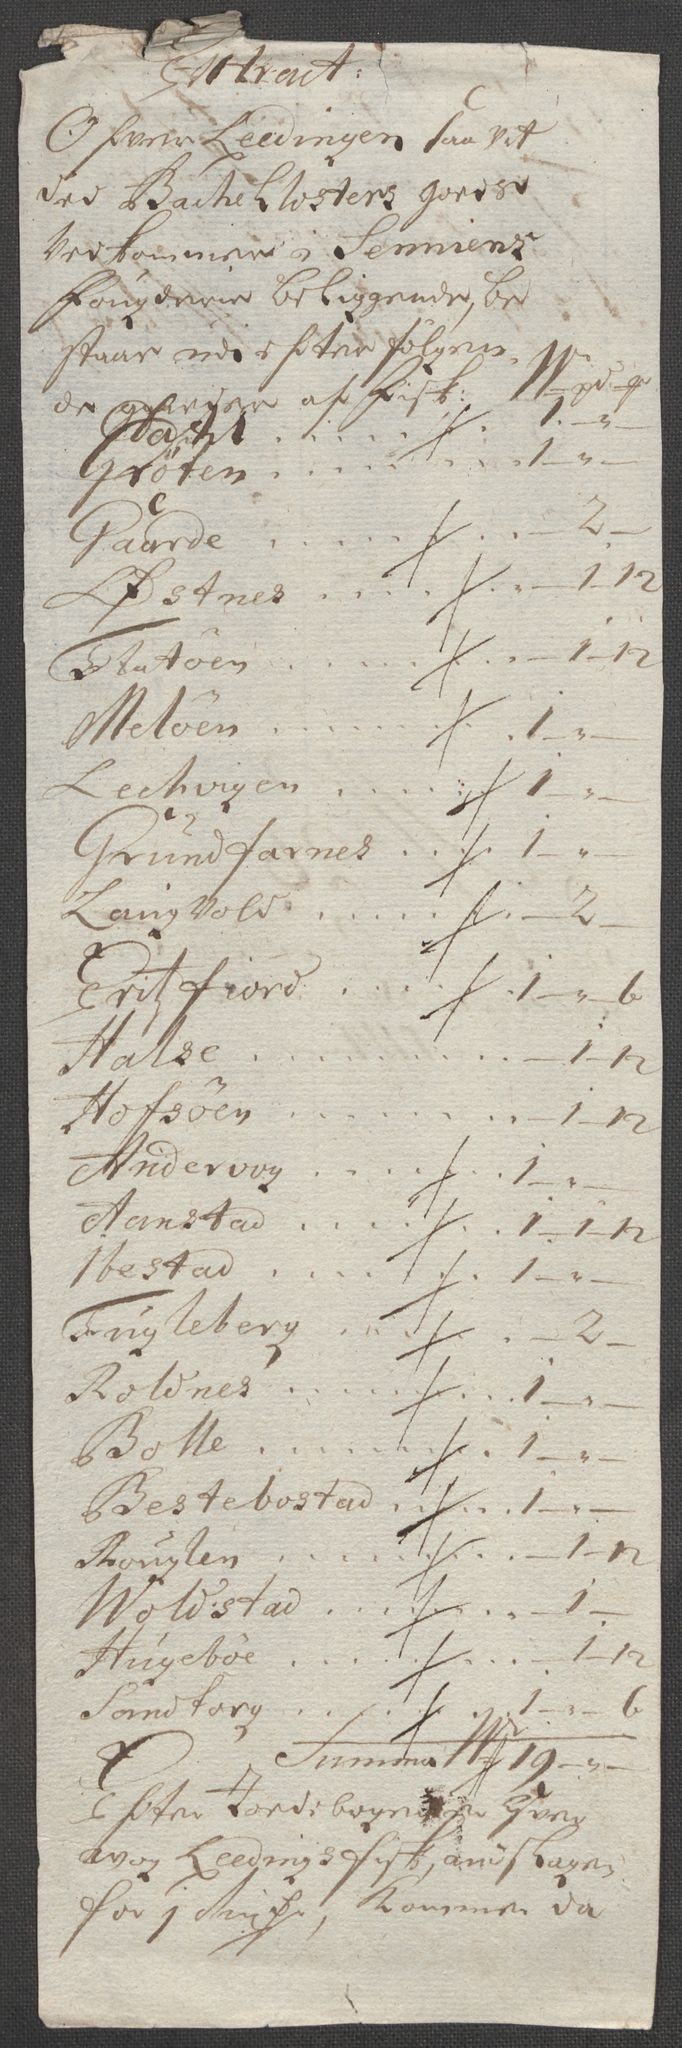 Extract:
Ofver Leedingen saa vit
ded Bache Closters gods
vedkommer i Senniens
fougderie beliggende, be
staar udi efter følgen-
de gaarder af fisk: W pd #
1 - " -
Gröten . . . . . 1 - " -
Gaarde . . . . . - 2 -
Løstnes . . . . . - 1 - 12
Slatöen . . . . . - 1 - 12
Melöen . . . . . 1 - " -
Leehvigen . . . . . 1 - " -
Grundfarnes . . . . 1 - " -
Langvold . . . . . - 2 -
Gritzfiord . . . . . 1 - " - 6
Halse . . . . . - 1 - 12
Hofsöen . . . . . - 1 - 12
Andervog . . . . . 1 - " -
Aanstad . . . . . 1 - 1 - 12
Ibestad . . . . . 1 - " -
Fugleberg . . . . . - 2 -
Roldnes . . . . . 1 - " -
Bolle . . . . . 1 - " -
Bestebostad . . . . 1 - " -
Rouglen . . . . . - 1 - 12
Woldstad . . . . . - 1 -
Hugeböe . . . . . - 1 - 12
Sandtorg . . . . . 1 - " - 6
Summa W 19 - " -
Efter Jordebogen er hver
wog Leedings fisk, anslagen
for 1 , kommer da